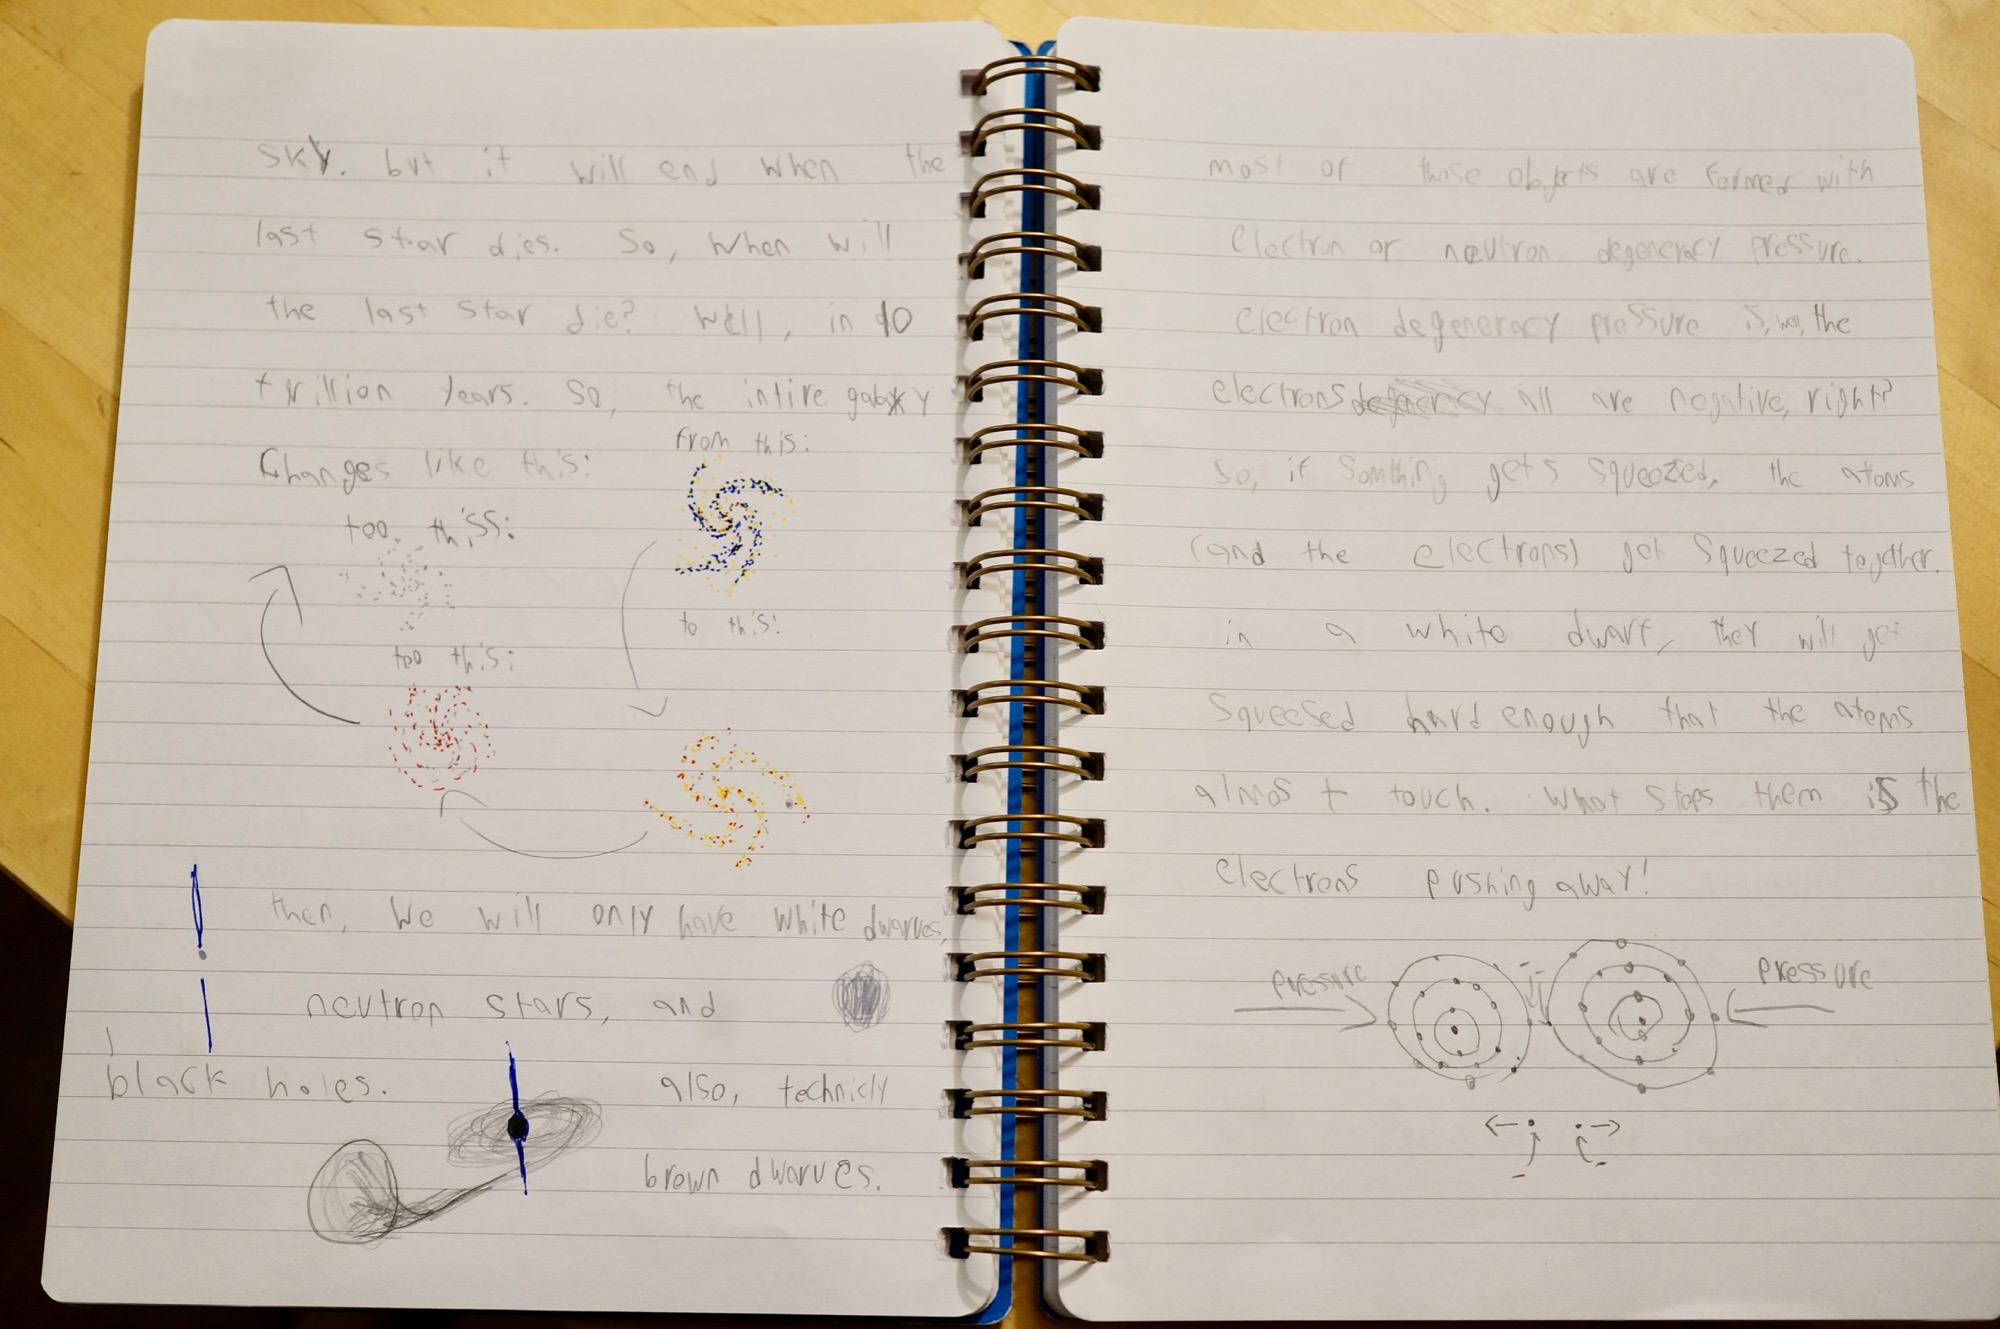 sky. but it will end when the
last star dies. So, when will
the last star die? Well, in 10
trillion years. So, the intire galaxy
Changes like this:
from this:
too this:
to this:
too this:
then, we will only have white dwarves,
neutron stars, and
black holes.
also, technicly
brown dwarves.
most of those objects are formed with
Electron or neutron degeneracy pressure.
electron degeneracy pressure is, well, the
electrons all are negative, right?
So, if somthing gets squeezed, the atoms
(and the electrons) get squeezed together.
in a white dwarf, they will get
squeesed hard enough that the atoms
almost touch. What stops them is the
electrons pushing away!
pressure
pressure